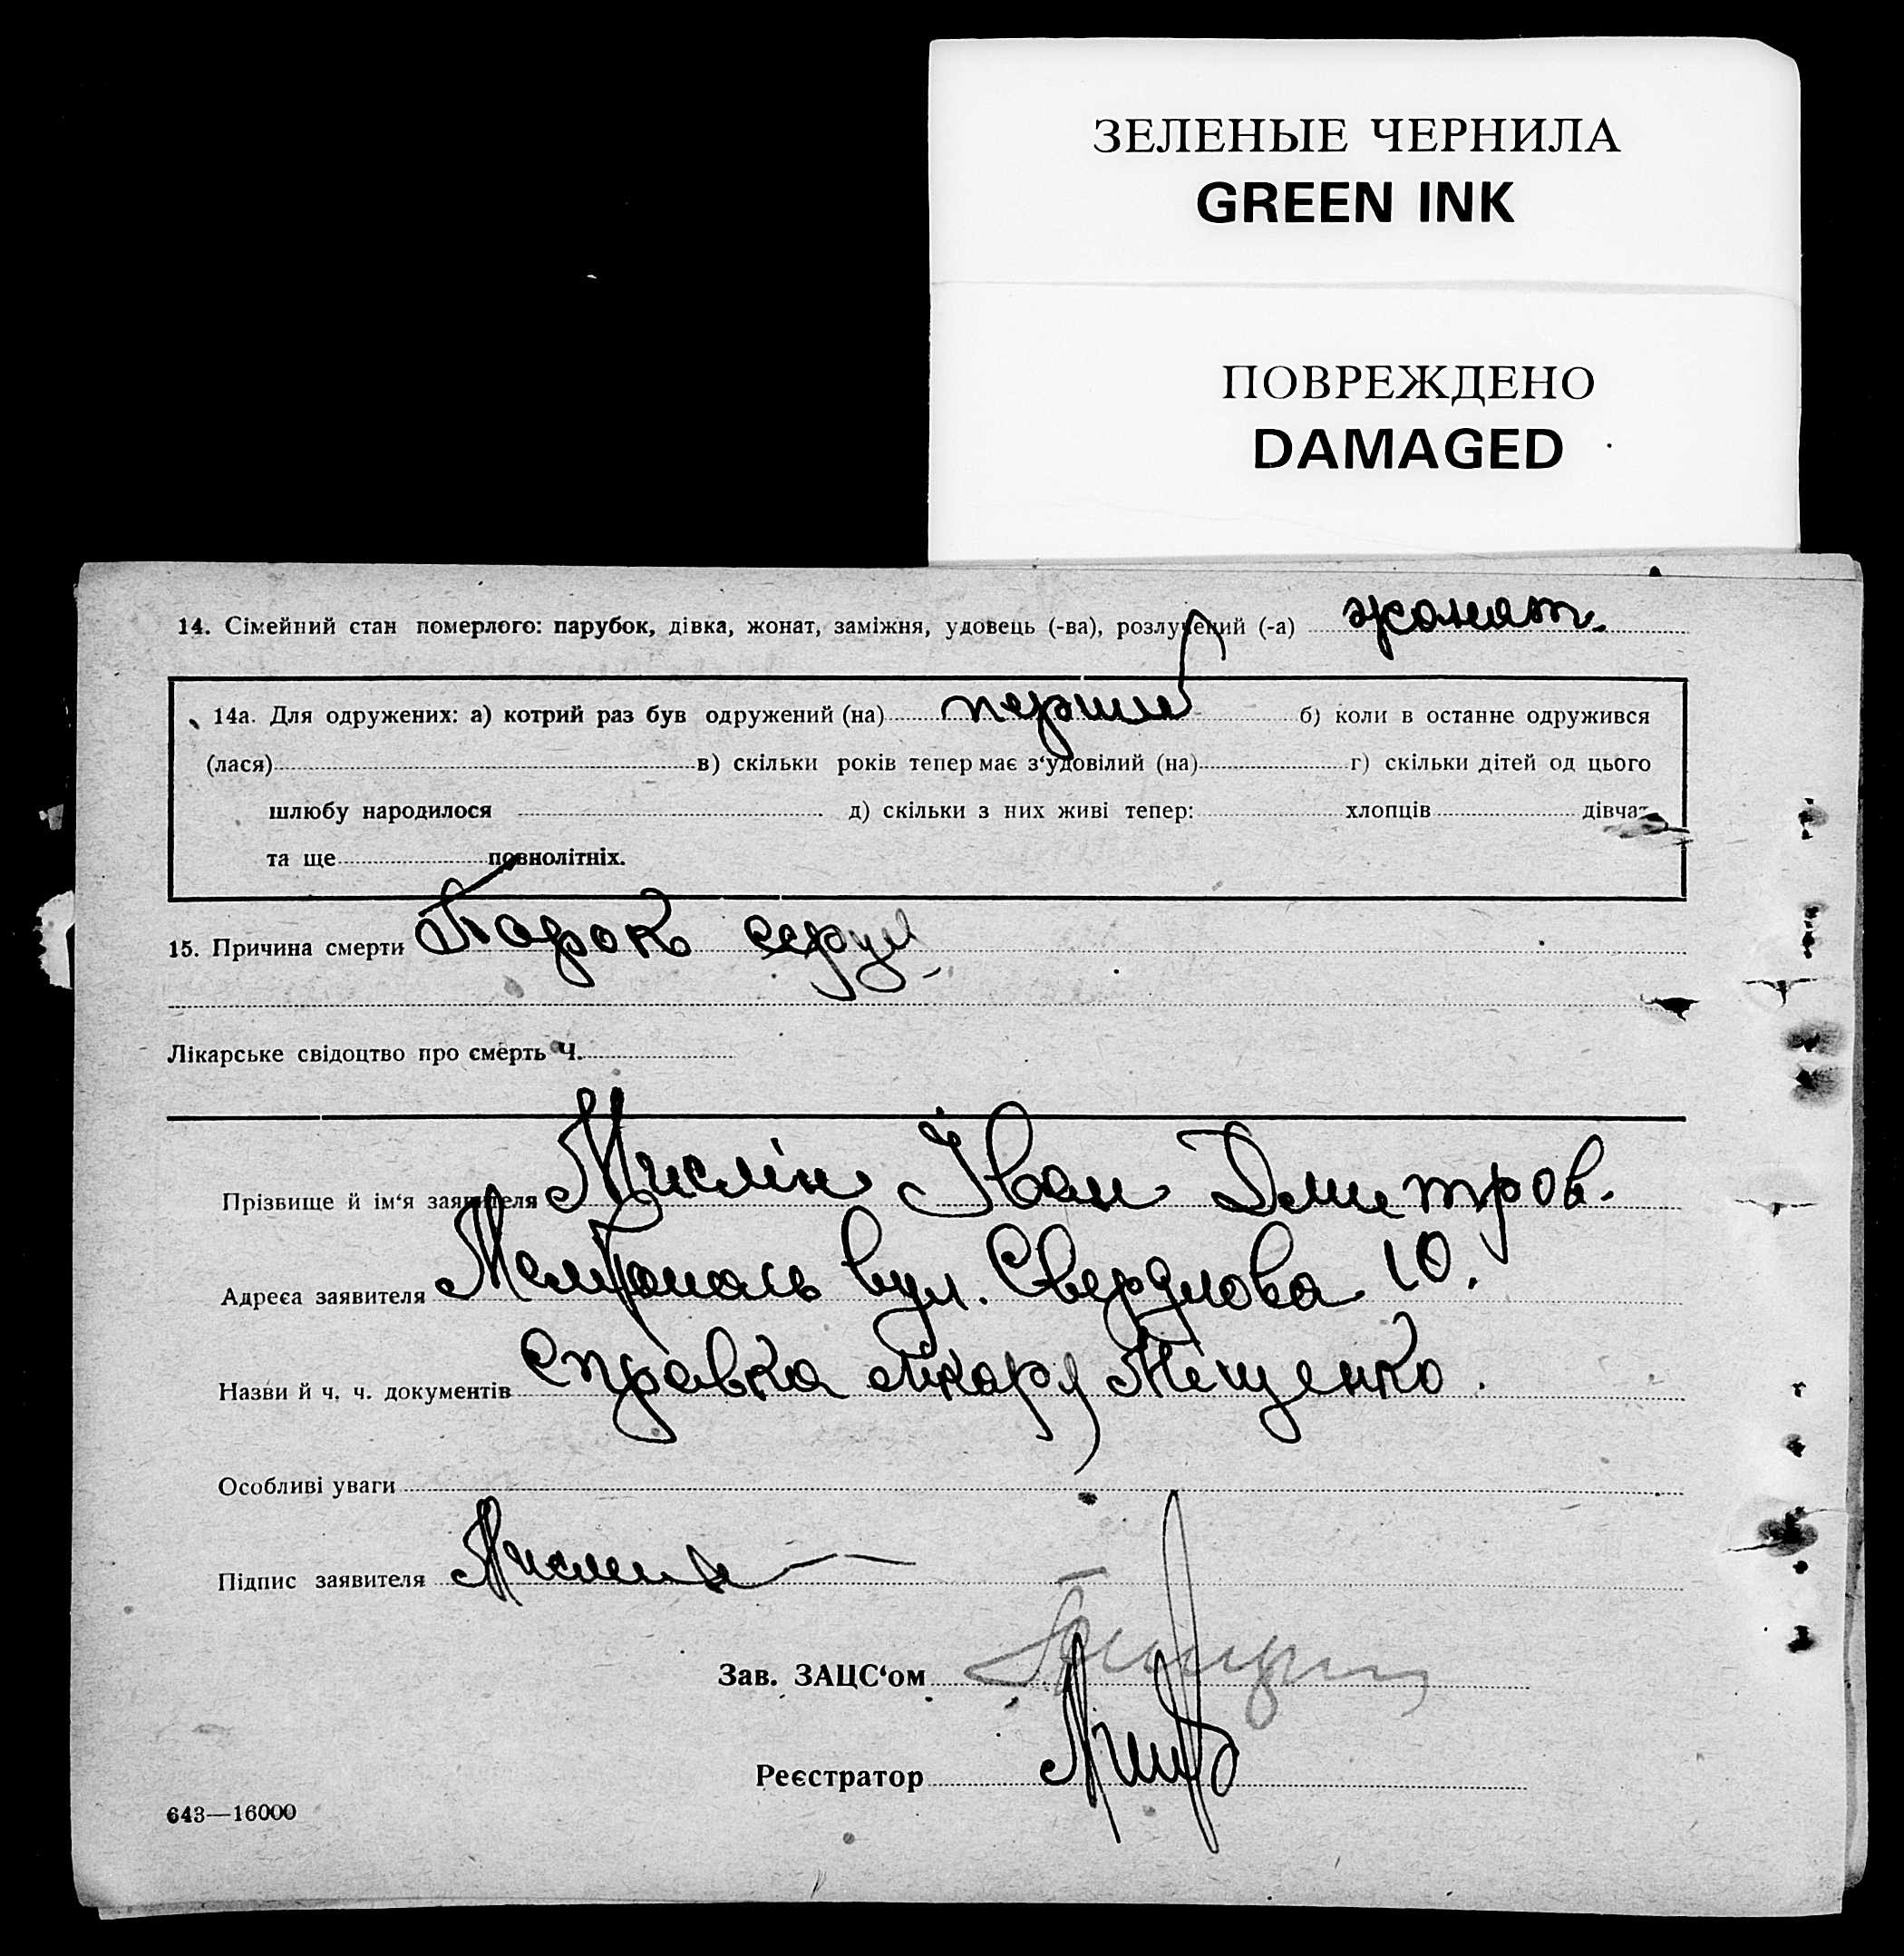 ЗЕЛЕНЫЕ ЧЕРНИЛА
GREEN INK
ПОВРЕЖДЕНО
DAMAGED
14. Сімейний стан померлого: парубок, дівка, жонат, заміжня, удовець (-ва), розлучений (-а) жонат.
14а. Для одружених: а) котрий раз був одружений (на) перший б) коли в останнє одружився
(лася) в) скільки років тепер має з‘удовілий (на) г) скільки дітей од цього
шлюбу народилося д) скільки з них живі тепер: хлопців дівчат
та ще повнолітніх.
15. Причина смерти Порок серця
Лікарське свідоцтво про смерть Ч.
Прізвище й ім‘я заявителя Мислін Іван Дмитров.
Адреса заявителя Мелітополь вул. Свердлова 10.
Назви й ч. ч. документів Справка лікаря Тищенко.
Особливі уваги
Підпис заявителя
Зав. ЗАЦС‘ом
Реєстратор
643—16000